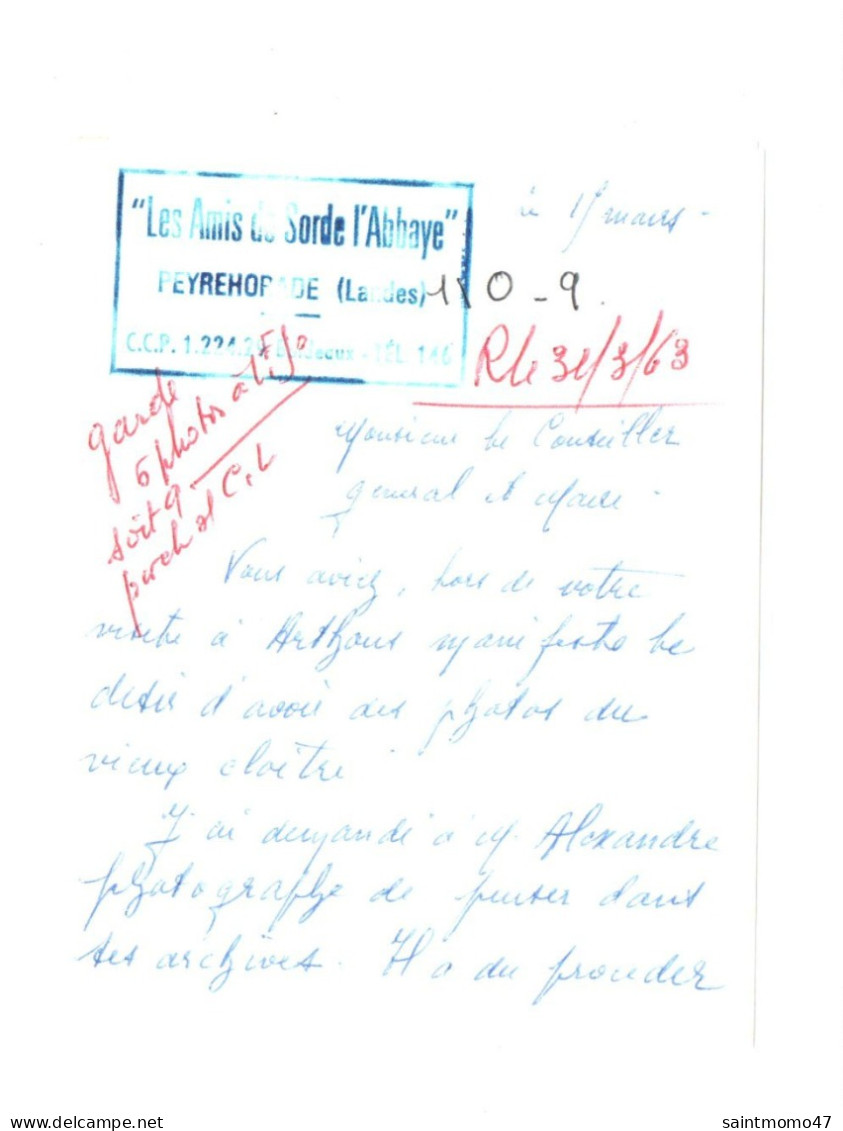 "Les Amis de Sorde l'Abbaye"
PEYREHORADE (Landes)
C.C.P. 1.224.29 Bordeaux - TÉL. 146
le 15 mars -
110 - 9.
R le 31/3/63
garde
6 photos à 1,50
soit 9
par ch. et C.L
Monsieur le Conseiller
général et Maire -
Vous aviez, lors de votre
visite à Arthous manifesté le
desir d'avoir des photos du
vieux cloître
J'ai demandé à M. Alexandre
photographe de puiser dans
ses archives. Il a du proceder
saintmomo47